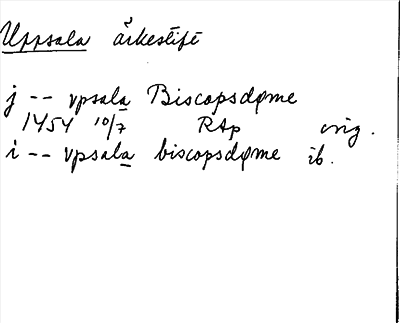 Uppsala ärkestift
j -- vpsala Biscopsdøme
1454 10/7 RAp orig.
i -- vpsala biscopsdøme ib.